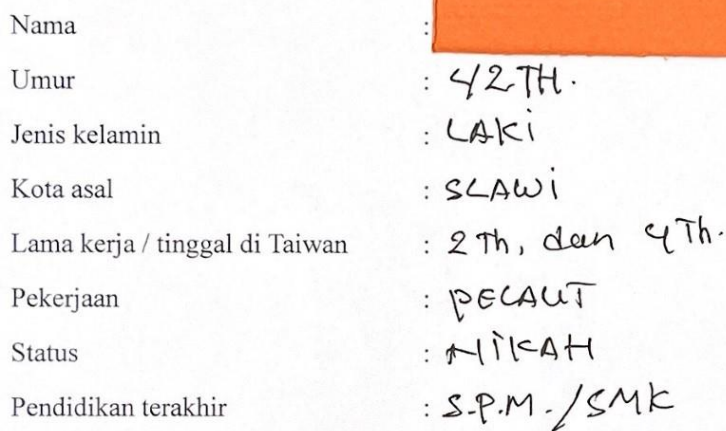 Nama :
Umur : 42 TH.
Jenis kelamin : LAKi
Kota asal : SLAWi
Lama kerja / tinggal di Taiwan : 2 Th, dan 4 Th.
Pekerjaan : PELAUT
Status : NiKAH
Pendidikan terakhir : S.P.M./SMK